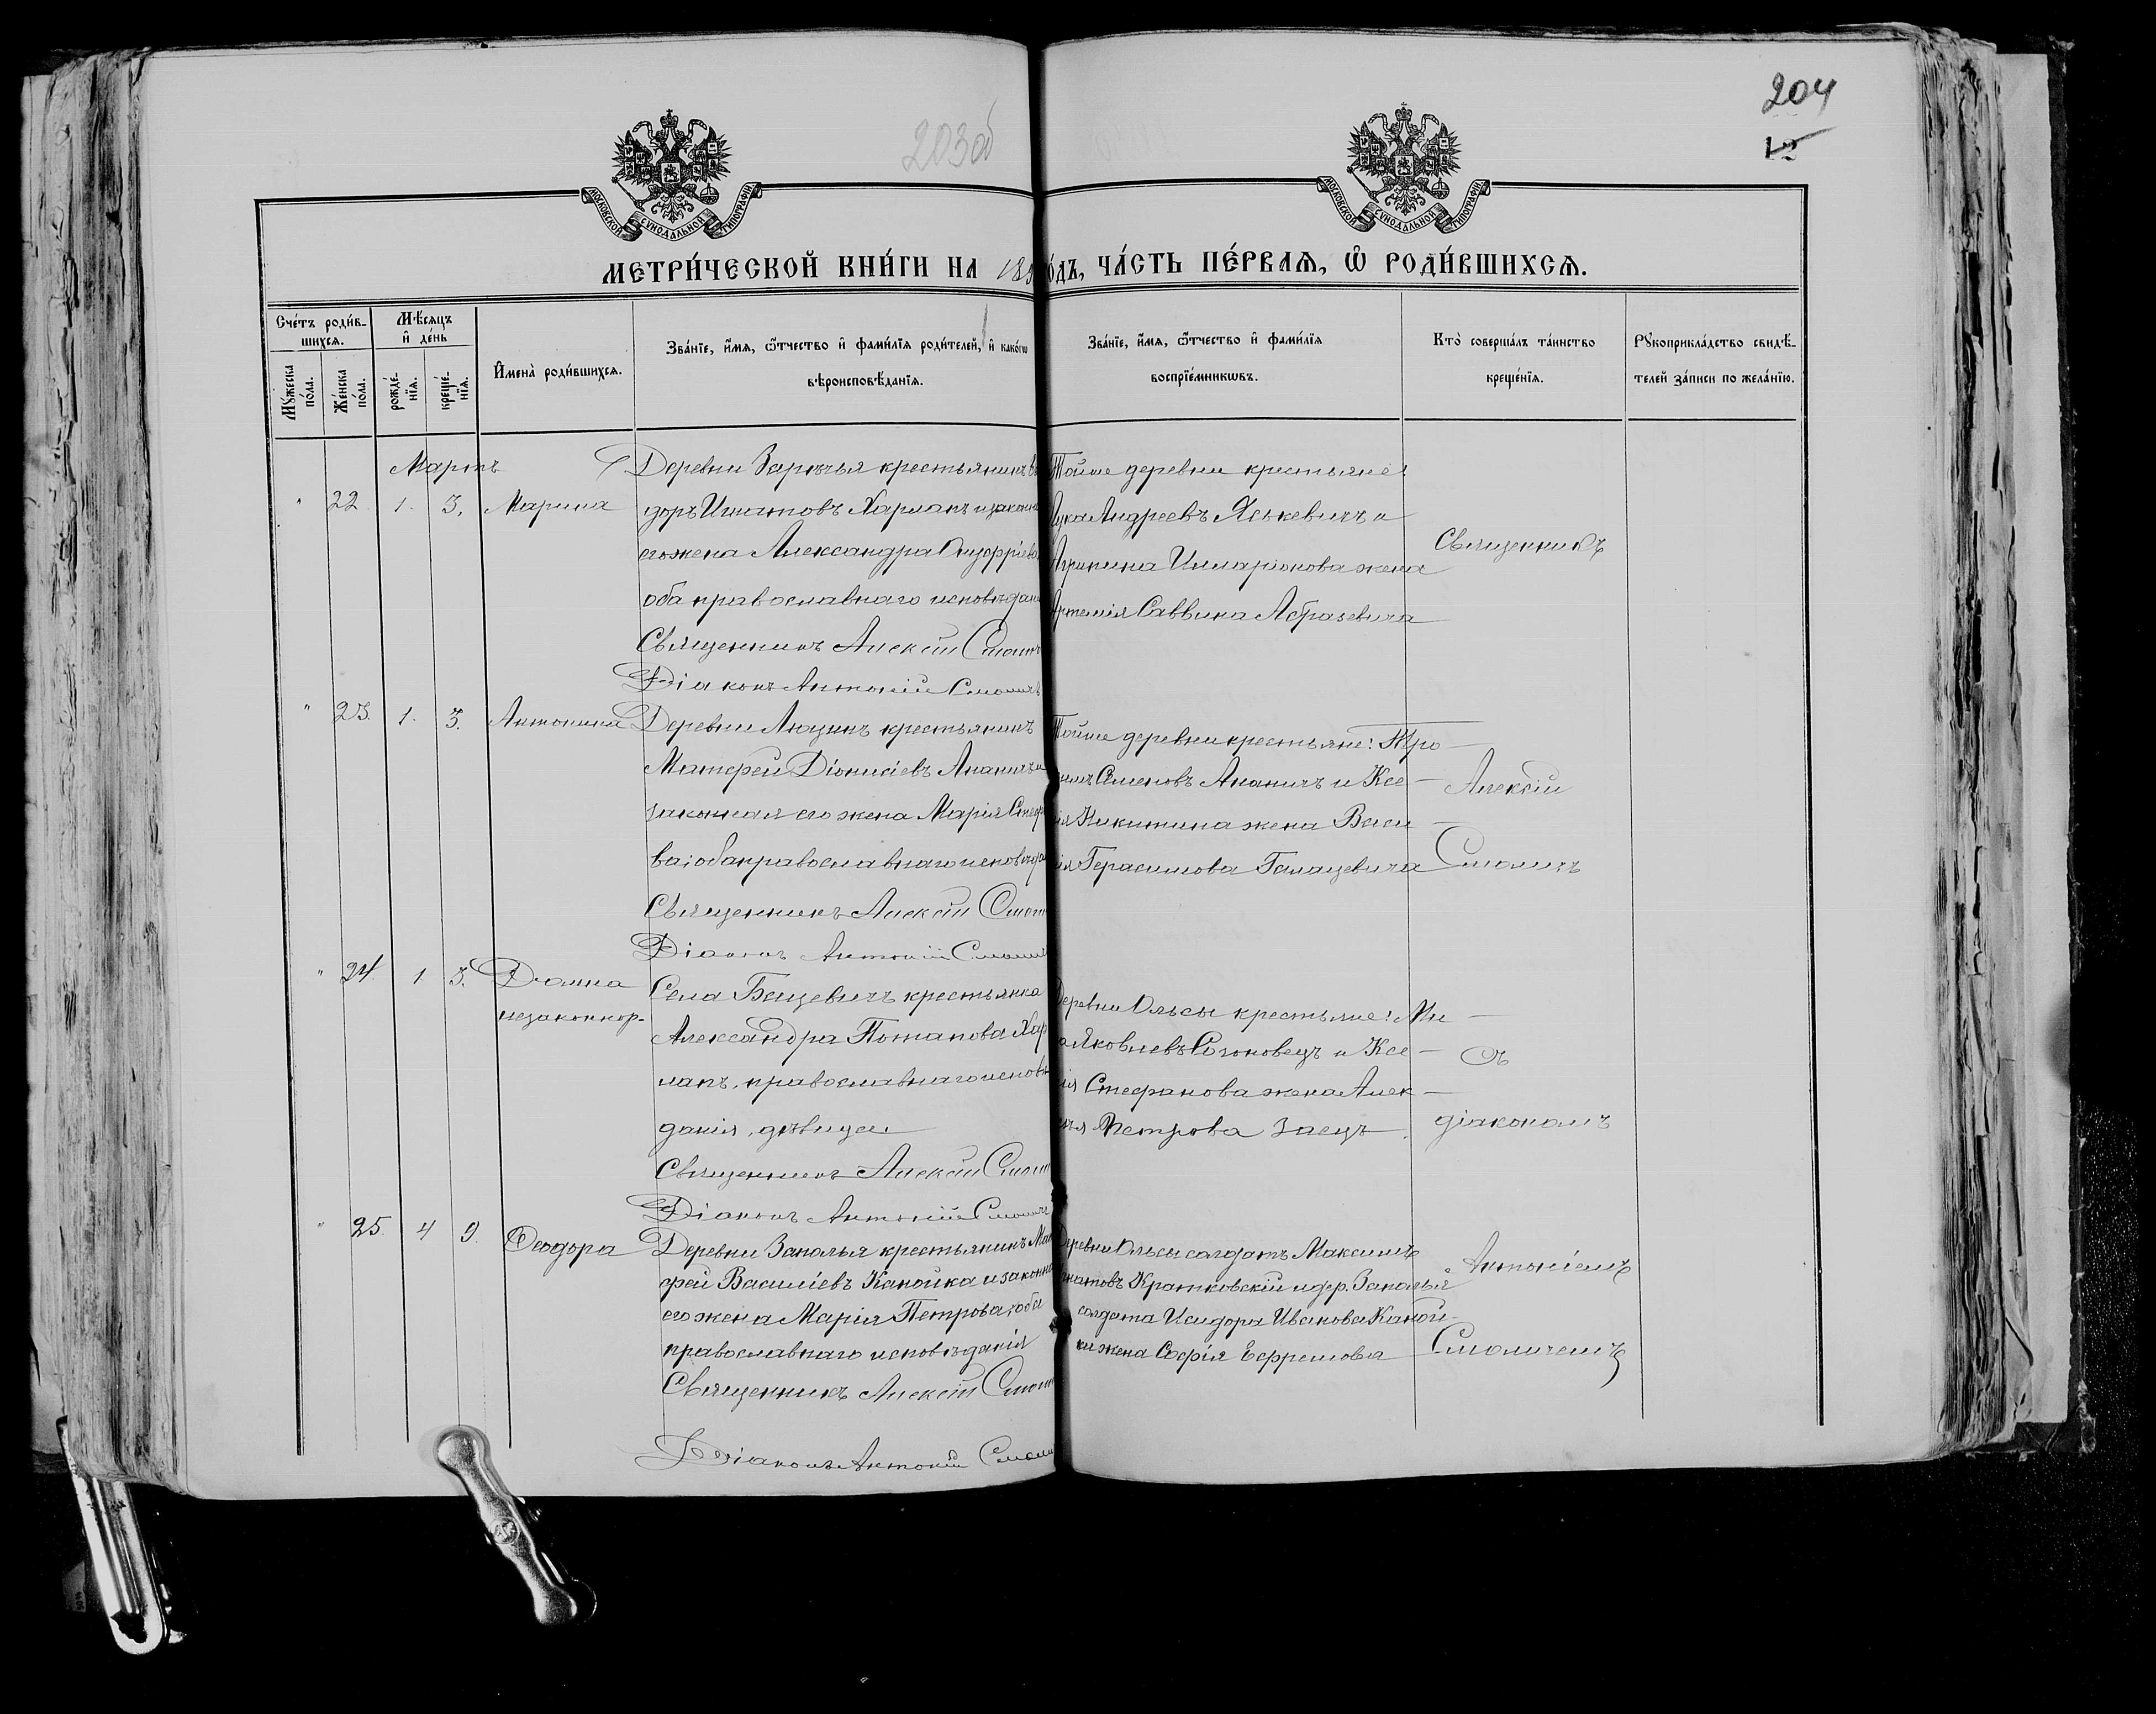 204
12
203об
МОСКОВСКОЙ СѴНОДАЛЬНОЙ ТИПОГРАФІИ
МОСКОВСКОЙ СѴНОДАЛЬНОЙ ТИПОГРАФІИ
МЕТРИ́ЧЕСКОЙ КНИ́ГИ НА 18 о́дъ, ЧА́СТЬ ПЕ́РВАѦ, Ѡ҆ РОДИ́ВШИХСѦ.
Сче́тъ роди́в-
шихсѧ.
Мꙋ́жеска по́ла.
Же́нска по́ла.
Мѣ́сѧцъ
и҆ де́нь
рожде́-нїѧ.
креще́-нїѧ.
И҆мена̀ роди́вшихсѧ.
Зва́нїе, и҆́мѧ, ѻ҆́тчество и҆ фами́лїѧ роди́телей, и҆ како́гѡ
вѣроисповѣ́данїѧ.
Зва́нїе, и҆́мѧ, ѻ҆́тчество и҆ фами́лїѧ
воспрїе́мникѡвъ.
Кто̀ соверша́лъ та́инство
креще́нїѧ.
Рꙋкоприкла́дство свидѣ́-
телей за́писи по жела́нїю.
Мартъ
" 22. 1. 3. Марина
Деревни Зарѣчья крестьянинъ
доръ Игнатовъ Харланъ и законн
его жена Александра Онуфріева
оба православнаго исповѣдан
Священникъ Алексій Смолич
Діаконъ Антоній Смоличъ
Тойже деревни крестьяне:
Лука Андреевъ Яськевичъ и
Агрипина Иларіонова жена
Артемія Саввина Абразевича
" 23. 1. 3. Антонина
Деревни Люцинъ крестьянинъ
Матфей Діонисіевъ Ананичъ и
законная его жена Марія Стеф
ва; оба православнаго исповѣда
Священникъ Алексій Смол
Діаконъ Антоній Смолич
Тойже деревни крестьяне: Тро
имъ Семеновъ Ананичъ и Ксе
ія Никитина жена Васи
ія Герасимова Галацевича
" 24. 1. 3. Домна
незаконнор.
Села Бецевичъ крестьянка
Александра Потапова Хар
ланъ, православнаго исповѣ
данія, дѣвица
Священникъ Алексій Смол
Діаконъ Антоній Смоличъ
Деревни Ольсы крестьяне: Ми
а Яковлевъ Согоновецъ и Ксе
ія Стефанова жена Алек
ѣя Петрова Заецъ
" 25. 4 9. Ѳеодора
Деревни Заполья крестьянинъ Мат
фей Василіевъ Канойка и законна
его жена Марія Петрова; оба
православнаго исповѣданія
Священникъ Алексій Смол
Діаконъ Антоній Смоли
Деревни Ольсы солдатъ Максимъ
Игнатовъ Кратковскій и дер. Заполья
солдата Исидора Иванова Каной-
ки жена Софія Ефремова
Священникъ
Алексій
Смоличъ
съ
діакономъ
Антоніемъ
Смоличемъ